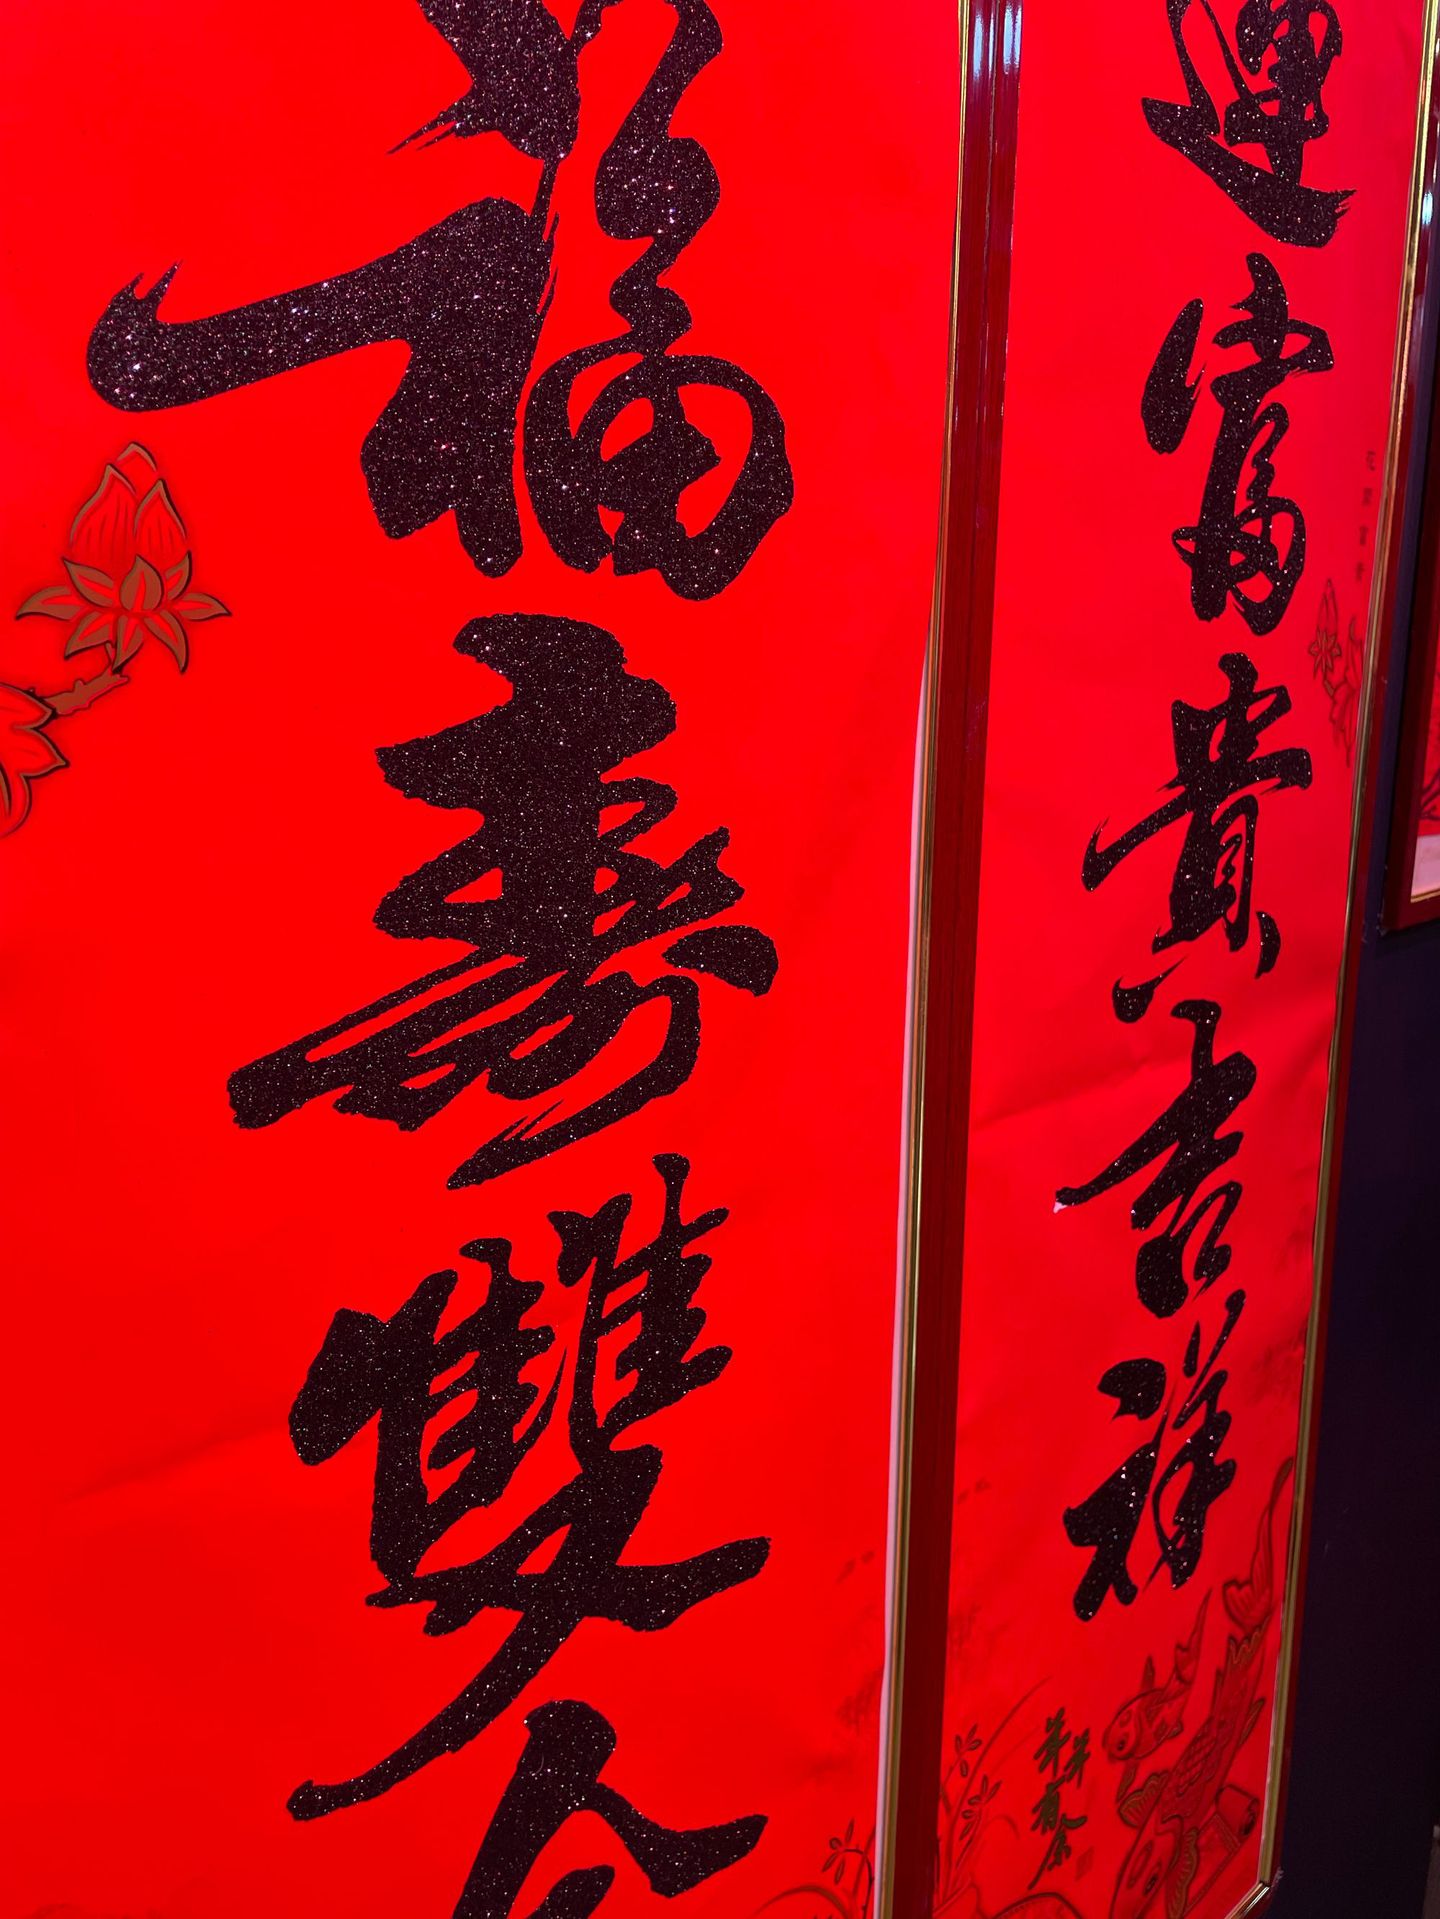 運富貴吉祥
年年有余
福壽雙全